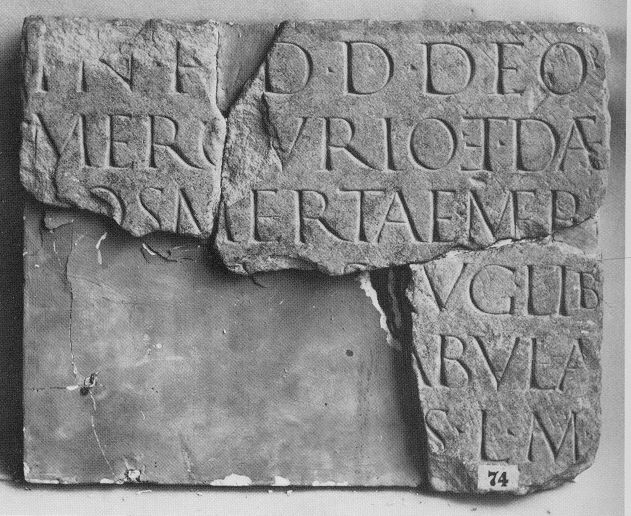 IN H·D·D·DEO
MERCVRIO·ET·DAE
ROSMERTAE·MER
VG LIB
ABVLA
S·L·M
74